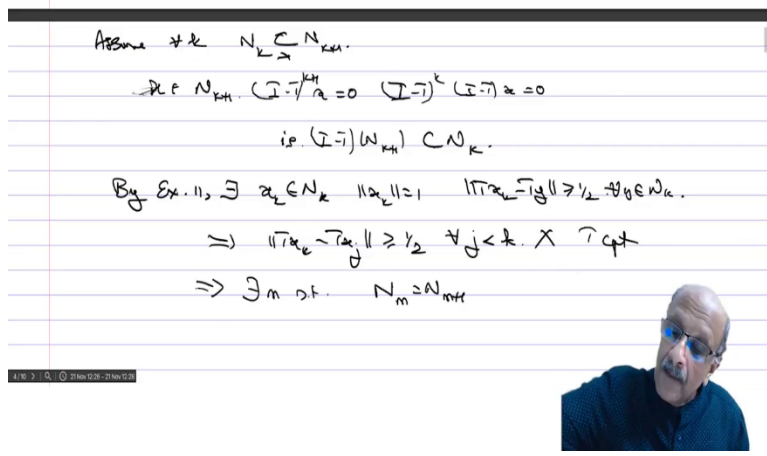 Assume ∀ k N_k ⊊ N_{k+1}.
x ∈ N_{k+1}. (I-T)^{k+1} x = 0 (I-T)^k (I-T) x = 0
i.e. (I-T)(N_{k+1}) ⊂ N_k.
By Ex. 11, ∃ x_k ∈ N_k ||x_k||=1 ||Tx_k - Ty|| ≥ 1/2 ∀ y ∈ N_k.
⇒ ||Tx_k - Tx_j|| ≥ 1/2 ∀ j < k. X T cpt
⇒ ∃ n s.t. N_m = N_{m+1}
4/10 21 Nov 12:26 - 21 Nov 12:26